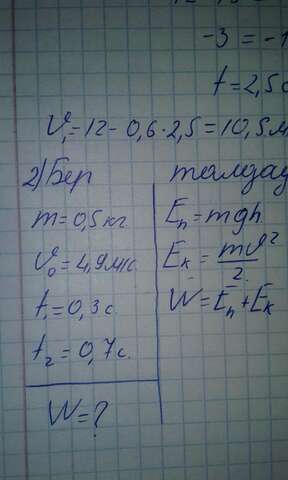 -3 = -1
t = 2,5с
V₁ = 12 - 0,6 · 2,5 = 10,5м
2) Бер
m = 0,5 кг
V₀ = 4,9 м/с
t₁ = 0,3 с
t₂ = 0,7 с.
W = ?
талдау
Eₙ = mgh
Eₖ = mV²/2
W = Eₙ + Eₖ